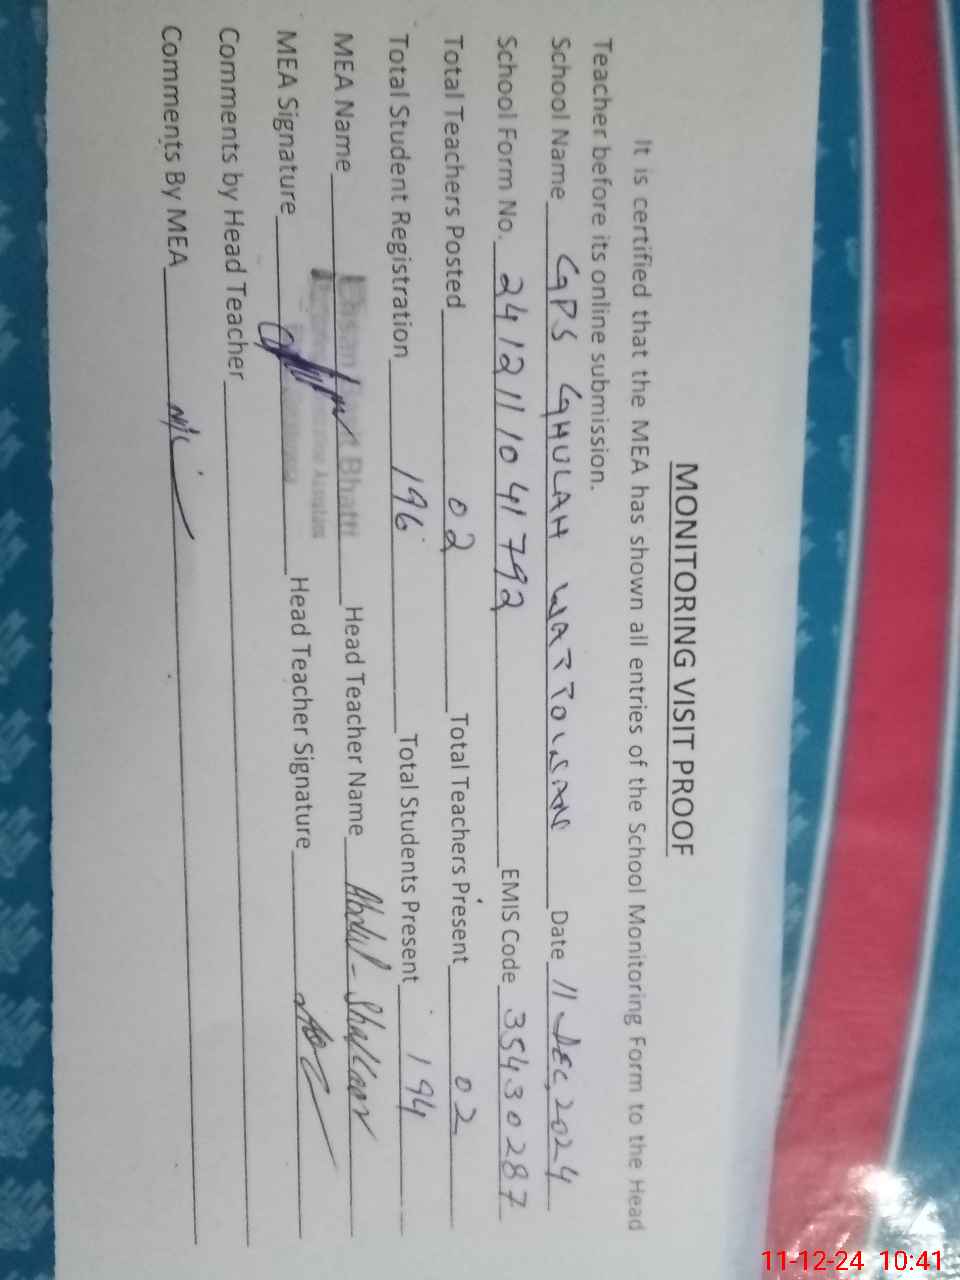 MONITORING VISIT PROOF
It is certified that the MEA has shown all entries of the School Monitoring Form to the Head
Teacher before its online submission.
School Name GPS GHULAH WATTOUSAN Date 11 DEC, 2024
School Form No. 241211104 1792 EMIS Code 35430287
Total Teachers Posted 02 Total Teachers Present 02
Total Student Registration 196 Total Students Present 194
MEA Name Bhatti Head Teacher Name Abdul-Shakoor
MEA Signature Head Teacher Signature
Comments by Head Teacher
Comments By MEA
11-12-24 10:41